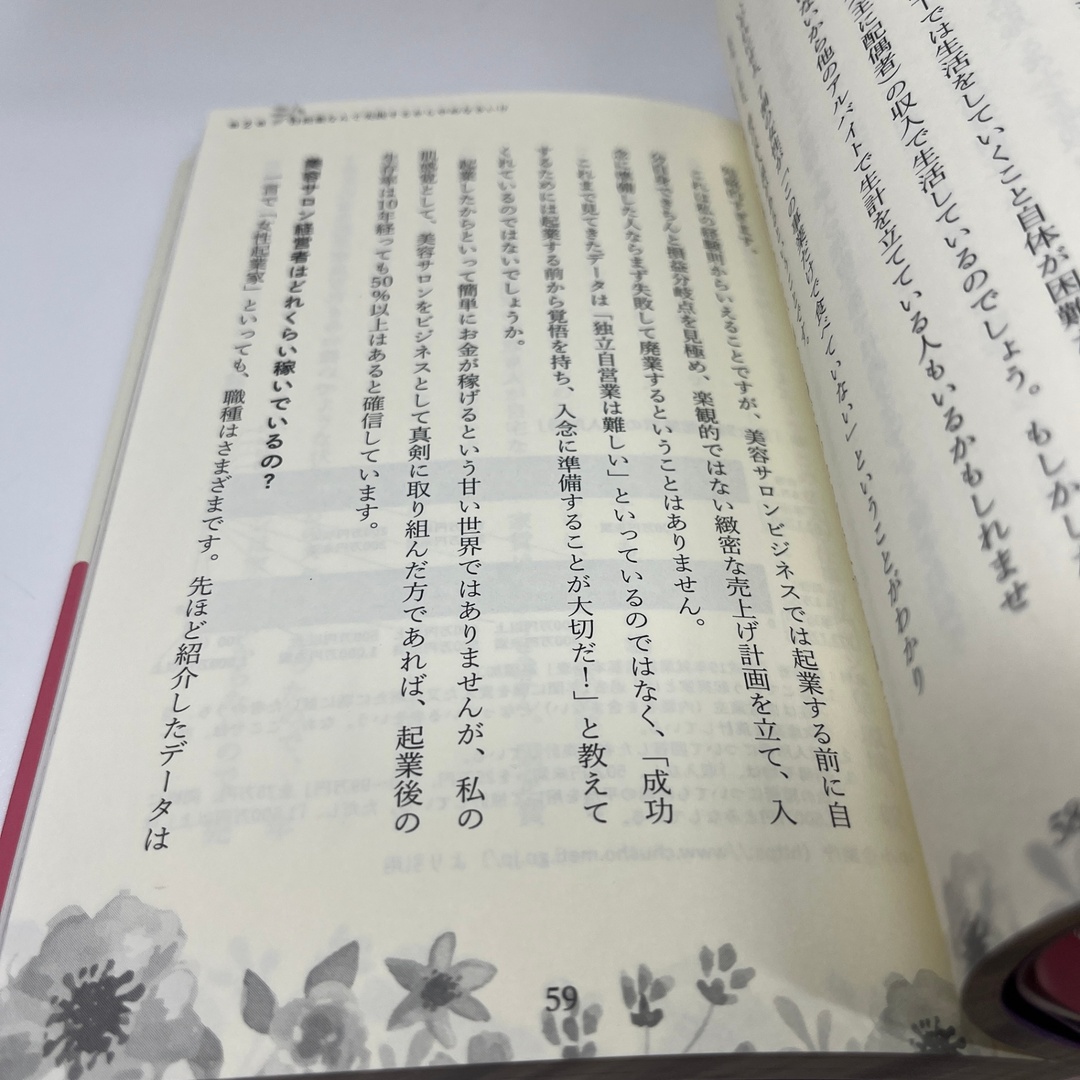 では生活をしていくこと自体が困難
主に配偶者）の収入で生活しているのでしょう。もしかし
ないから他のアルバイトで生計を立てている人もいるかもしれませ
「この事業だけで成り立っていない」ということがわかり
58
これは私の経験則からいえることですが、美容サロンビジネスでは起業する前に自
分自身できちんと損益分岐点を見極め、楽観的ではない緻密な売上げ計画を立て、入
念に準備した人ならまず失敗して廃業するということはありません。
これまで見てきたデータは「独立自営業は難しい」といっているのではなく、「成功
するためには起業する前から覚悟を持ち、入念に準備することが大切だ！」と教えて
くれているのではないでしょうか。
起業したからといって簡単にお金が稼げるという甘い世界ではありませんが、私の
肌感覚として、美容サロンをビジネスとして真剣に取り組んだ方であれば、起業後の
生存率は10年経っても50％以上はあると確信しています。
美容サロン経営者はどれくらい稼いでいるの？
一言で「女性起業家」といっても、職種はさまざまです。先ほど紹介したデータは
59